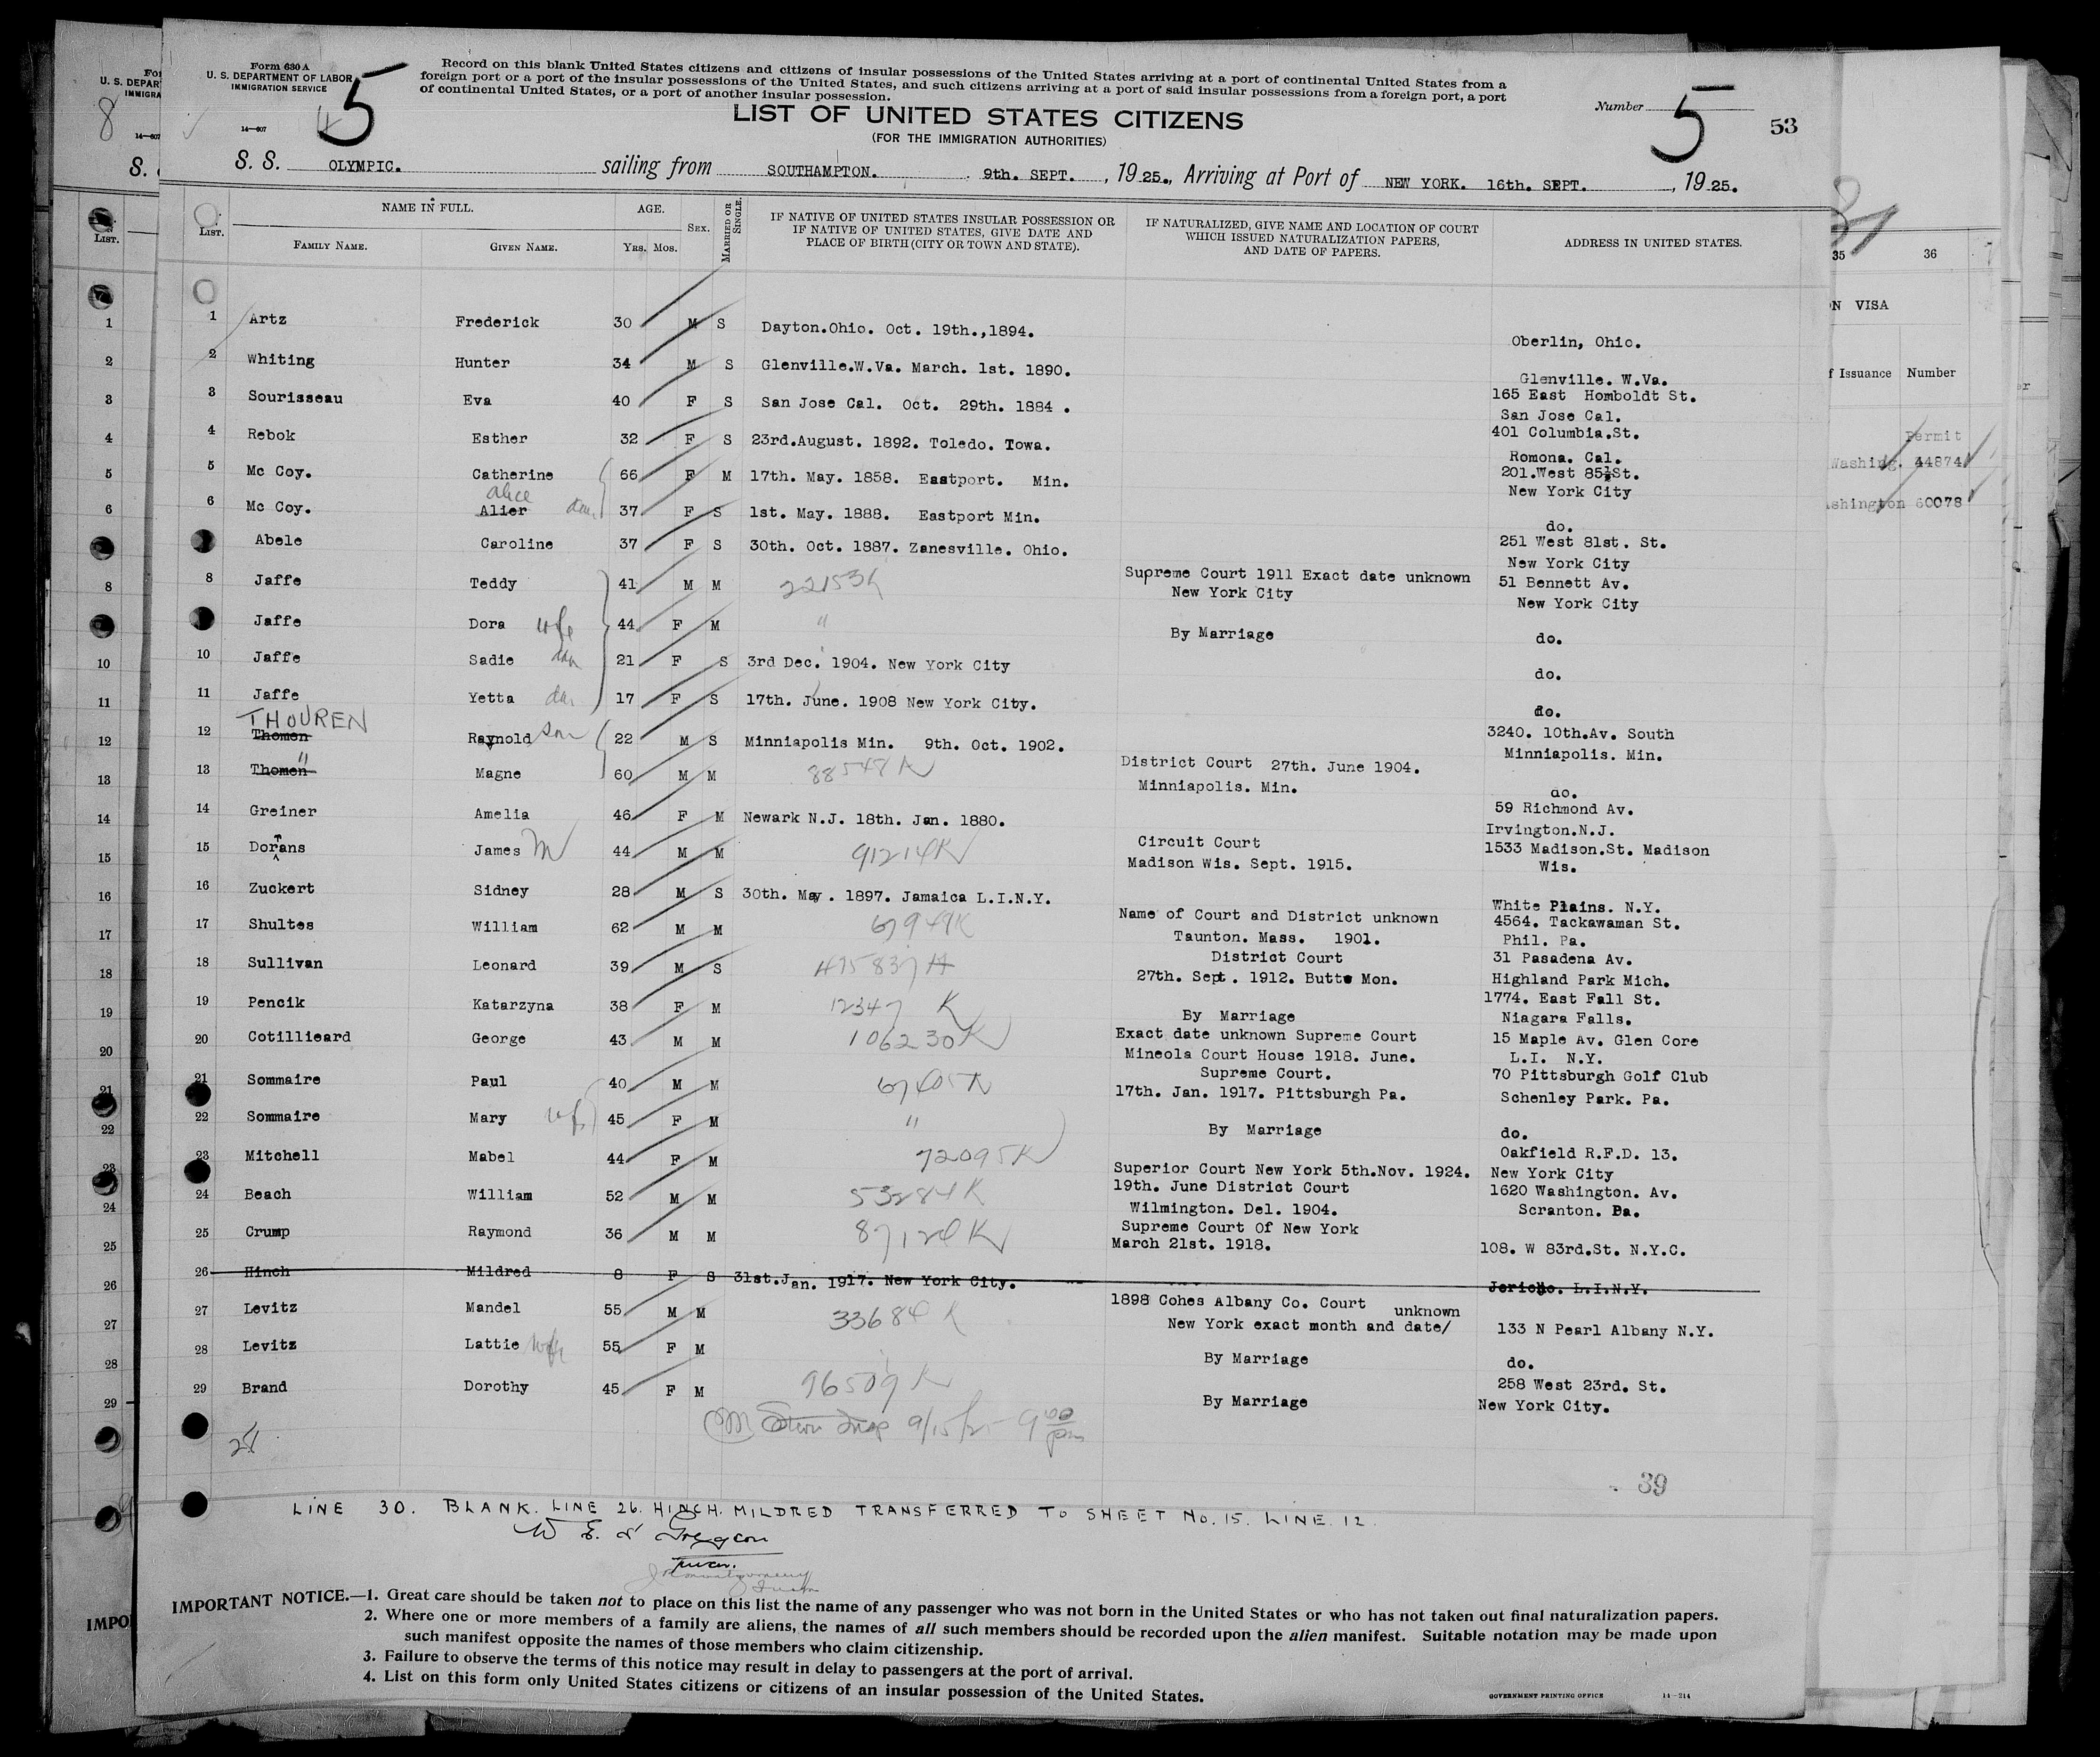 Form 630 A
U. S. DEPARTMENT OF LABOR
IMMIGRATION SERVICE
14—607
5
Record on this blank United States citizens and citizens of insular possessions of the United States arriving at a port of continental United States from a
foreign port or a port of the insular possessions of the United States, and such citizens arriving at a port of said insular possessions from a foreign port, a port
of continental United States, or a port of another insular possession.
LIST OF UNITED STATES CITIZENS
(FOR THE IMMIGRATION AUTHORITIES)
Number 5
53
S. S. OLYMPIC. sailing from SOUTHAMPTON. 9th. SEPT., 1925., Arriving at Port of NEW YORK. 16th. SEPT., 1925.
LIST. NAME IN FULL. FAMILY NAME. GIVEN NAME. AGE. YRS. MOS. SEX. MARRIED OR SINGLE. IF NATIVE OF UNITED STATES INSULAR POSSESSION OR IF NATIVE OF UNITED STATES, GIVE DATE AND PLACE OF BIRTH (CITY OR TOWN AND STATE). IF NATURALIZED, GIVE NAME AND LOCATION OF COURT WHICH ISSUED NATURALIZATION PAPERS, AND DATE OF PAPERS. ADDRESS IN UNITED STATES.
1 Artz Frederick 30 M S Dayton.Ohio. Oct. 19th.,1894. Oberlin, Ohio.
2 Whiting Hunter 34 M S Glenville.W.Va. March. 1st. 1890. Glenville. W.Va.
3 Sourisseau Eva 40 F S San Jose Cal. Oct. 29th. 1884 . 165 East Homboldt St. San Jose Cal.
4 Rebok Esther 32 F S 23rd.August. 1892. Toledo. Towa. 401 Columbia.St. Romona. Cal.
5 Mc Coy. Catherine 66 F M 17th. May. 1858. Eastport. Min. 201.West 85½St. New York City
6 Mc Coy. Alier Alice dau. 37 F S 1st. May. 1888. Eastport Min. do.
Abele Caroline 37 F S 30th. Oct. 1887. Zanesville. Ohio. 251 West 81st. St. New York City
8 Jaffe Teddy 41 M M 22153K Supreme Court 1911 Exact date unknown New York City 51 Bennett Av. New York City
Jaffe Dora wfe 44 F M " By Marriage do.
10 Jaffe Sadie dau 21 F S 3rd Dec. 1904. New York City do.
11 Jaffe Yetta dau 17 F S 17th. June. 1908 New York City. do.
THOUREN
12 Thomen Raynold son 22 M S Minniapolis Min. 9th. Oct. 1902. 3240. 10th.Av. South Minniapolis. Min.
13 Thomen " Magne 60 M M 88548K District Court 27th. June 1904. Minniapolis. Min. do.
14 Greiner Amelia 46 F M Newark N.J. 18th. Jan. 1880. 59 Richmond Av. Irvington.N.J.
15 Dorans James M 44 M M 91214K Circuit Court Madison Wis. Sept. 1915. 1533 Madison.St. Madison Wis.
16 Zuckert Sidney 28 M S 30th. May . 1897. Jamaica L.I.N.Y. White Plains. N.Y.
17 Shultes William 62 M M 67949K Name of Court and District unknown Taunton. Mass. 1901. 4564. Tackawaman St. Phil. Pa.
18 Sullivan Leonard 39 M S 475837A District Court 27th. Sept . 1912. Butte Mon. 31 Pasadena Av. Highland Park Mich.
19 Pencik Katarzyna 38 F M 12347 K By Marriage 1774. East Fall St. Niagara Falls.
20 Cotillieard George 43 M M 106230K Exact date unknown Supreme Court Mineola Court House 1918. June. 15 Maple Av. Glen Core L.I. N.Y.
21 Sommaire Paul 40 M M 67405K Supreme Court. 17th. Jan. 1917. Pittsburgh Pa. 70 Pittsburgh Golf Club Schenley Park. Pa.
22 Sommaire Mary wf 45 F M " By Marriage do.
23 Mitchell Mabel 44 F M 72095K Superior Court New York 5th.Nov. 1924. Oakfield R.F.D. 13. New York City
24 Beach William 52 M M 53284K 19th. June District Court Wilmington. Del. 1904. 1620 Washington. Av. Scranton. Pa.
25 Crump Raymond 36 M M 87120K Supreme Court Of New York March 21st. 1918. 108. W 83rd.St. N.Y.C.
26 Hinch Mildred 8 F S 31st.Jan. 1917. New York City. Jericho. L.I.N.Y.
27 Levitz Mandel 55 M M 33684K 1898 Cohes Albany Co. Court unknown New York exact month and date/ 133 N Pearl Albany N.Y.
28 Levitz Lattie wife 55 F M By Marriage do.
29 Brand Dorothy 45 F M 96509K By Marriage 258 West 23rd. St. New York City.
9/15/25 9 00 pm
39
LINE 30. BLANK. LINE 26. HINCH. MILDRED TRANSFERRED TO SHEET NO. 15. LINE 12.
IMPORTANT NOTICE.—1. Great care should be taken not to place on this list the name of any passenger who was not born in the United States or who has not taken out final naturalization papers.
2. Where one or more members of a family are aliens, the names of all such members should be recorded upon the alien manifest. Suitable notation may be made upon
such manifest opposite the names of those members who claim citizenship.
3. Failure to observe the terms of this notice may result in delay to passengers at the port of arrival.
4. List on this form only United States citizens or citizens of an insular possession of the United States.
GOVERNMENT PRINTING OFFICE 14—214
35 36
VISA
Issuance Number
Permit
Washing. 44874
60078